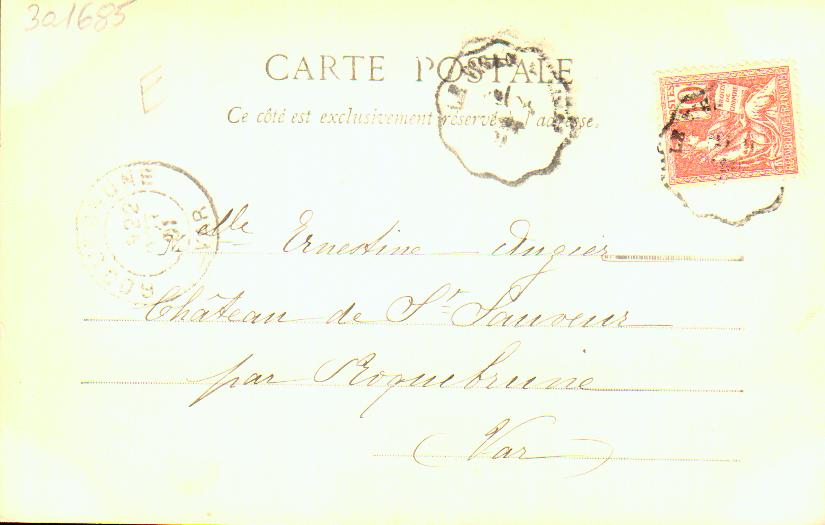 3a1685
E
CARTE POSTALE
Ce côté est exclusivement réservé à l'adresse.
10
RÉPUBLIQUE FRANÇAISE
VAR
22
Melle Ernestine Angier
Château de St Sauveur
par Roquebrune
(Var)